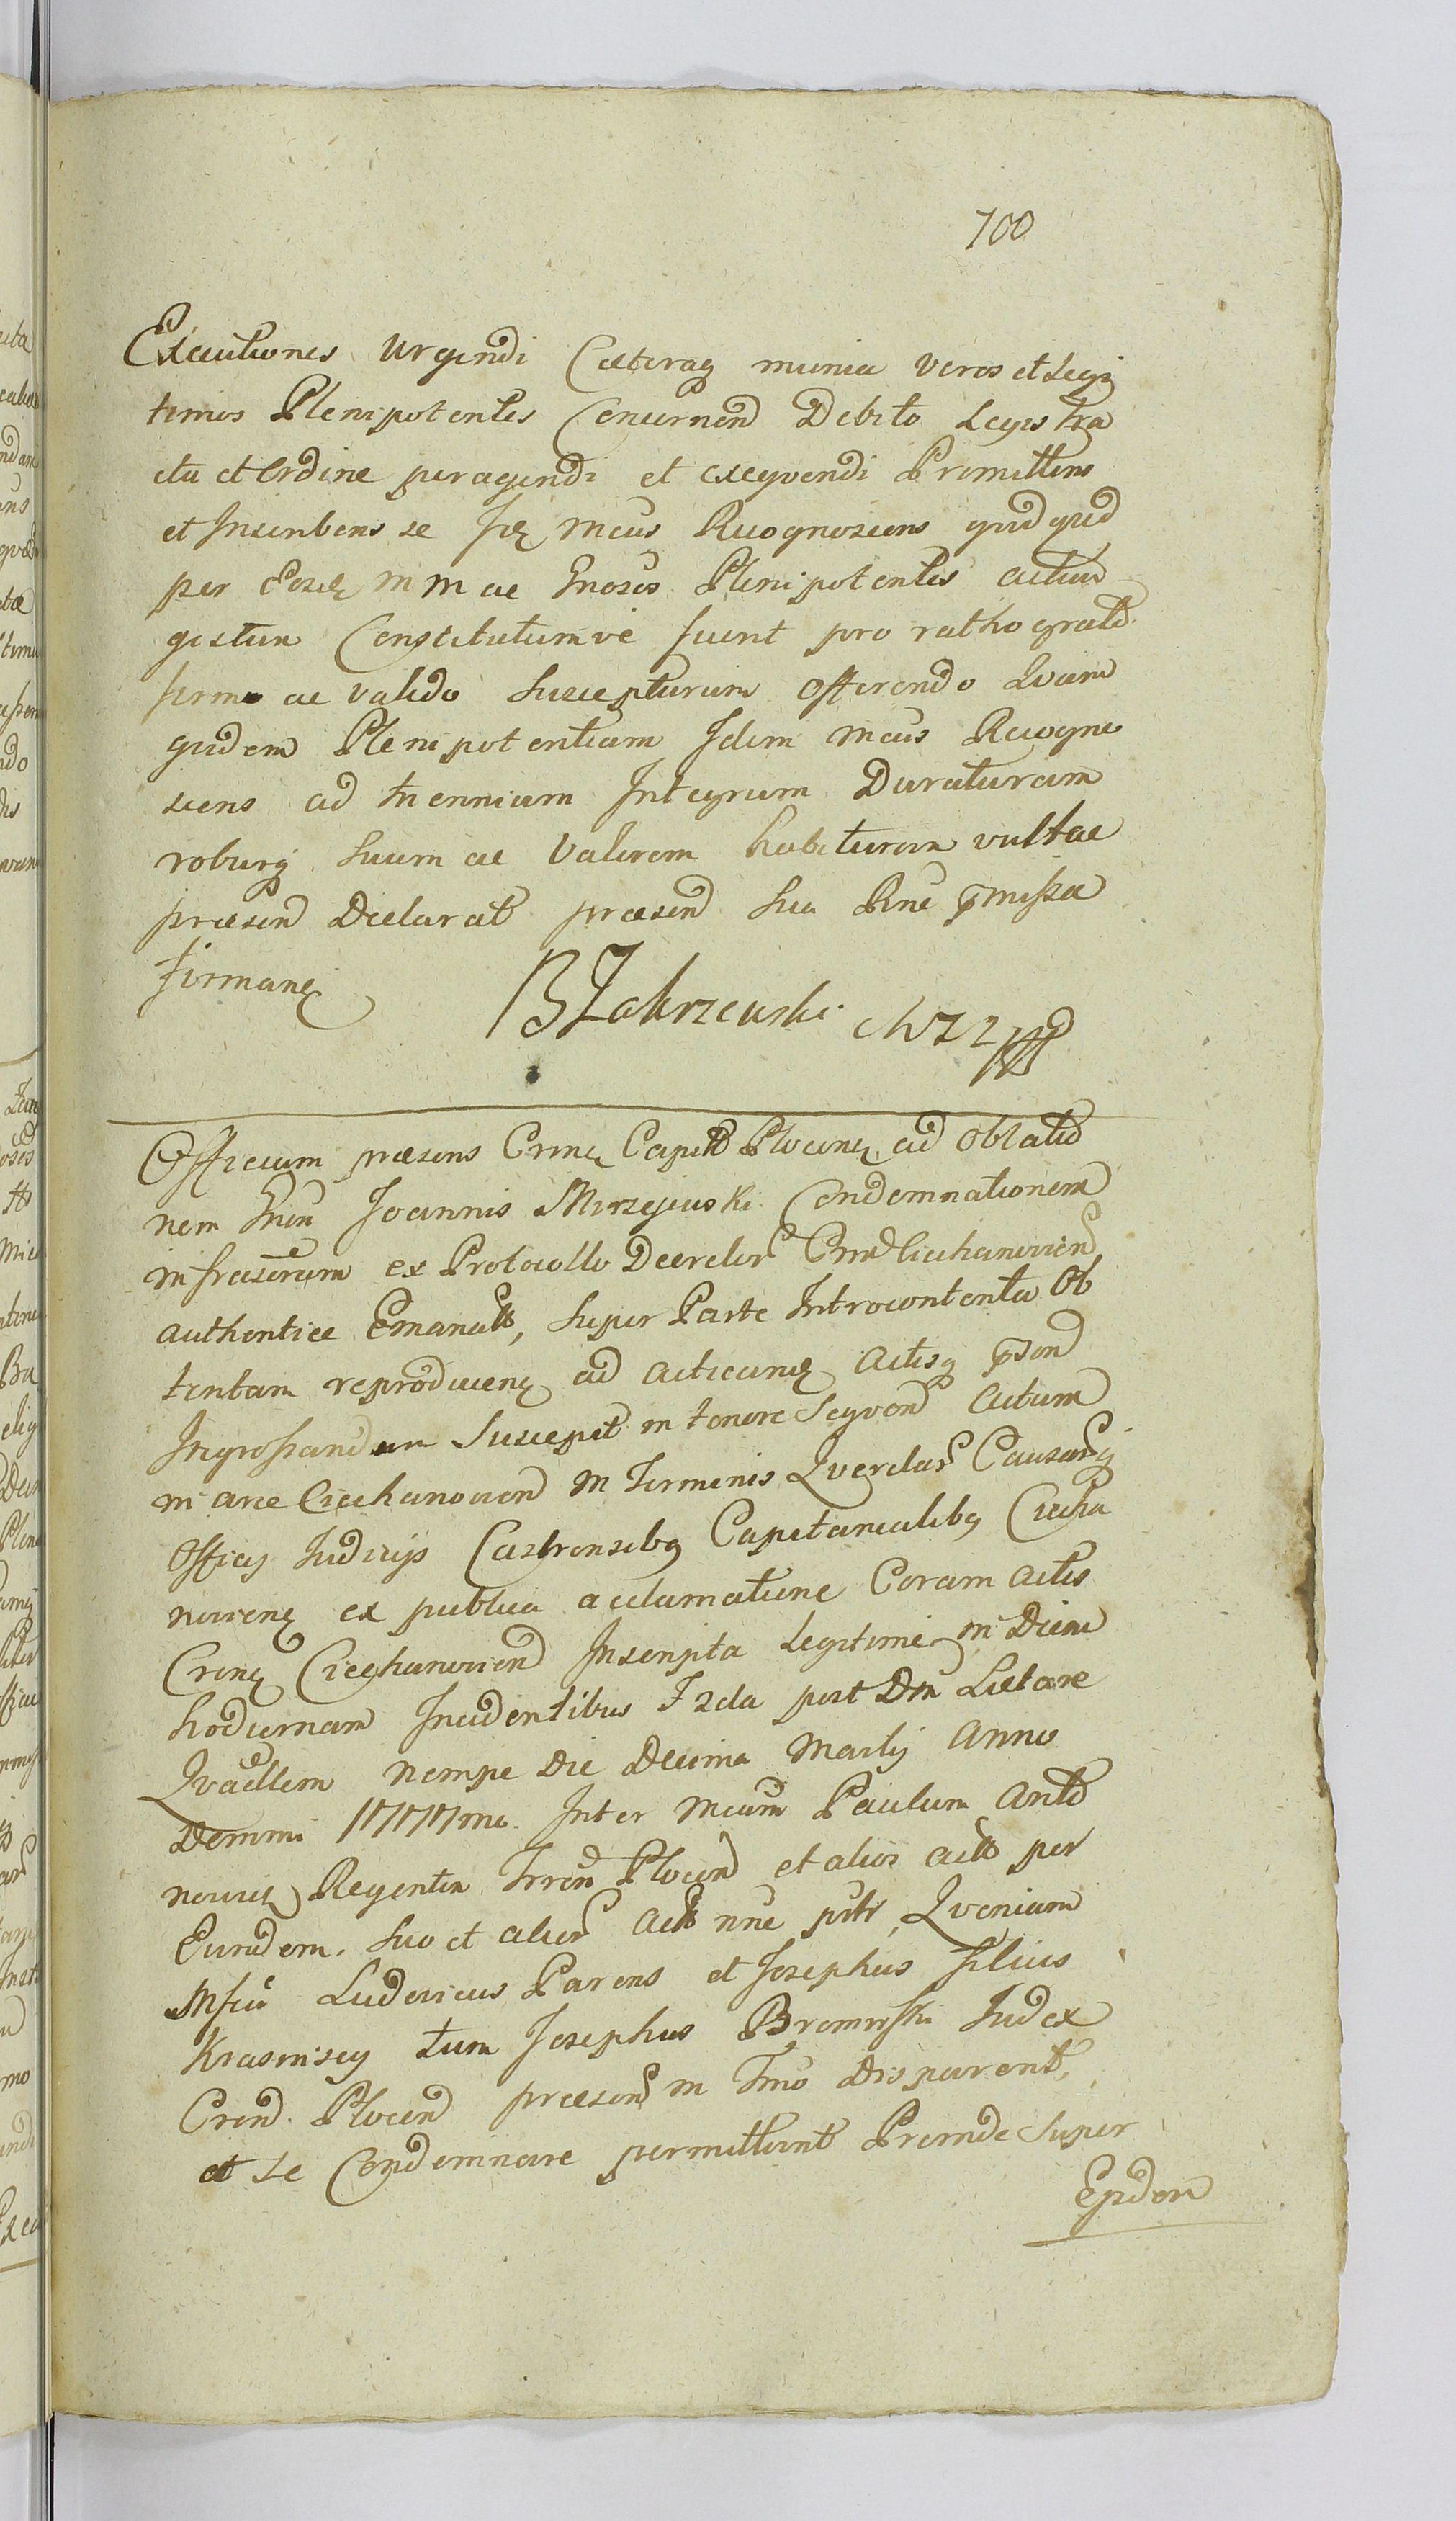 700
Executiones Urgendi Caeteraq munia veros et Legi
timos Plenipotentes Concernen Debito Legis tra
ctu et Ordine peragendi et exeqvendi Promittens
et Inscribens se Id Mcus Recognoscens quidquid
per Eosd MM ac Gnosos Plenipotentes actum
gestum Constitutumve fuerit pro ratho grato
firmo ac valido Suscepturum Offerendo Qvam
quidem Plenipotentiam Idem Mcus Recogno
scens ad triennium Integrum Duraturam
roburq Suum ac Valorem habituram vult ac
praesen Declarat praesen Sua Rne pmissa
firman
BZakrzewski
Officium praesens Crine Capit Plocen ad Oblatio
nem Gnsi Joannis Mirzejewski Condemnationem
infrascriptam ex Protocollo Decretor Cnr Ciechanovien
authentice Emanat, Super Parte Introcontenta Ob
tentam reproducen ad acticand actisq pson
Ingrossandam Suscepit in tenore Seqven Actum
in arce Ciechanovien in Terminis Qverelar Causarq
Officij Judicijs Castrensibq Capitanealibq Ciecha
novien ex publica acclamatione Coram actis
Cren Ciechanovien Inscripta Legitime in Diem
hodiernam Incidentibus F 2da post Dm Laetare
Qvadlem nempe die Decima Martij Anno
Domini 1777mo. Inter Mcum Paulum Anto
novic Regentem Trren Plocen et alios act per
Eundem. Suo et alior Act nne pstr, Qvoniam
Mfcus Ludovicus Parens et Josephus filius
Krasinscy tum Josephus Bromirski Judex
Cren. Plocen praesen in Tmo Disparent,
et se Condemnare permittunt Proinde Super
Epdem